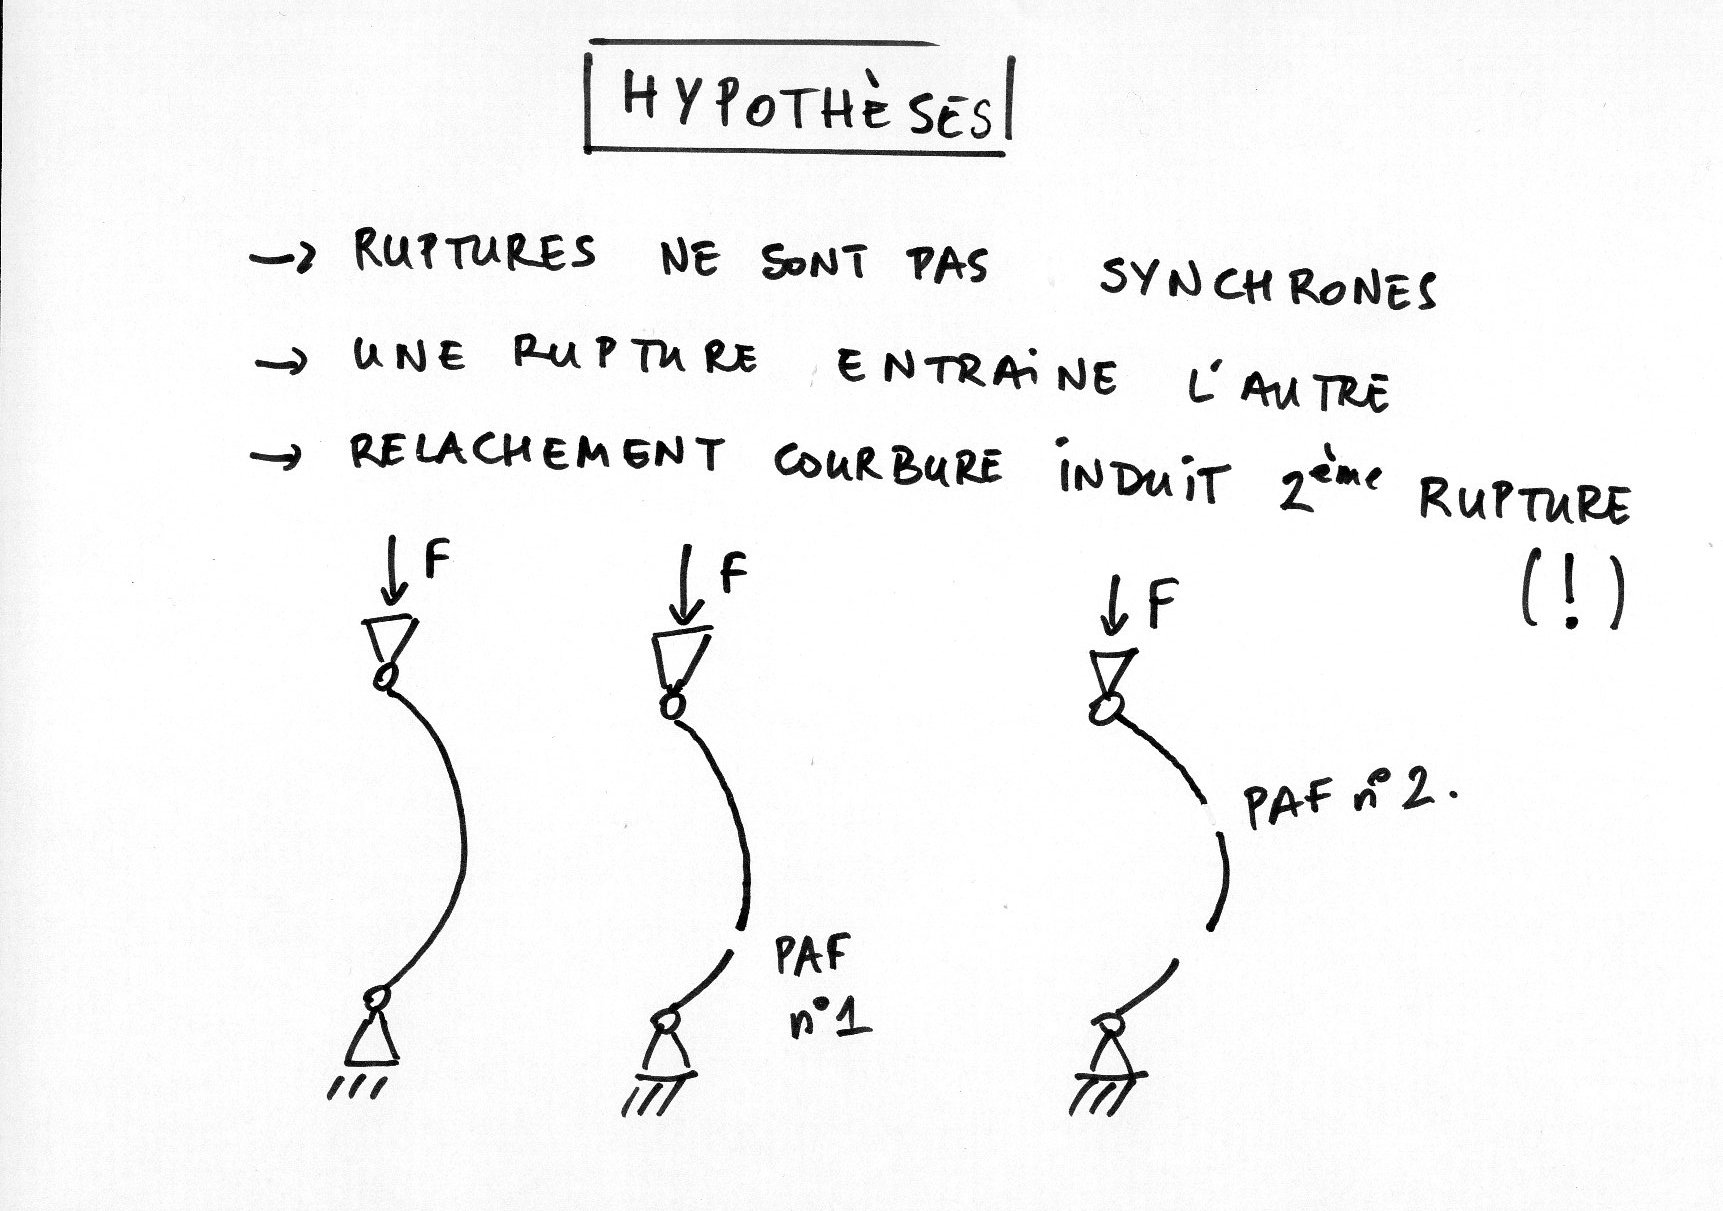 HYPOTHÈSES
→ RUPTURES NE SONT PAS SYNCHRONES
→ UNE RUPTURE ENTRAINE L'AUTRE
→ RELACHEMENT COURBURE INDUIT 2ème RUPTURE
(!)
F
F
F
PAF n° 2.
PAF
n°1